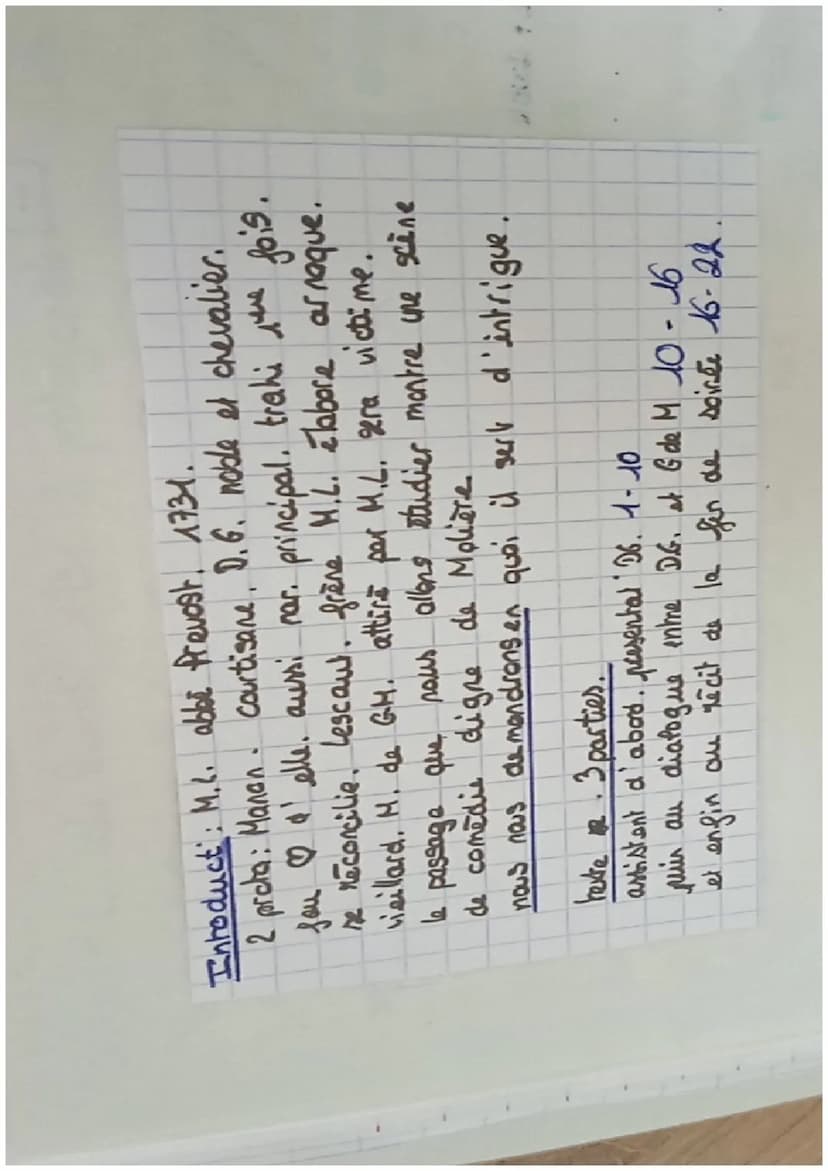 Introduct°: M.L. abbé Prevost. 1731.
2 prota: Manon. Cartisane. D.G. noble et chevalier.
fou ♡ d'elle. aussi nar. principal. trahi 1ere fois.
se réconcilie. Lescaut. frère M.L. élabore arnaque.
vieillard. M. de GM. attiré par M.L. sera victime.
le passage que nous allons étudier montre une scène
de comédie digne de Molière
nous nous demandrons en quoi il sert d'intrigue.
texte . 3 parties.
assistent d'abord. présentat° DG. 1-10
puis au dialogue entre DG. et G de M 10-16
et enfin au récit de la fin de soirée 16-22.